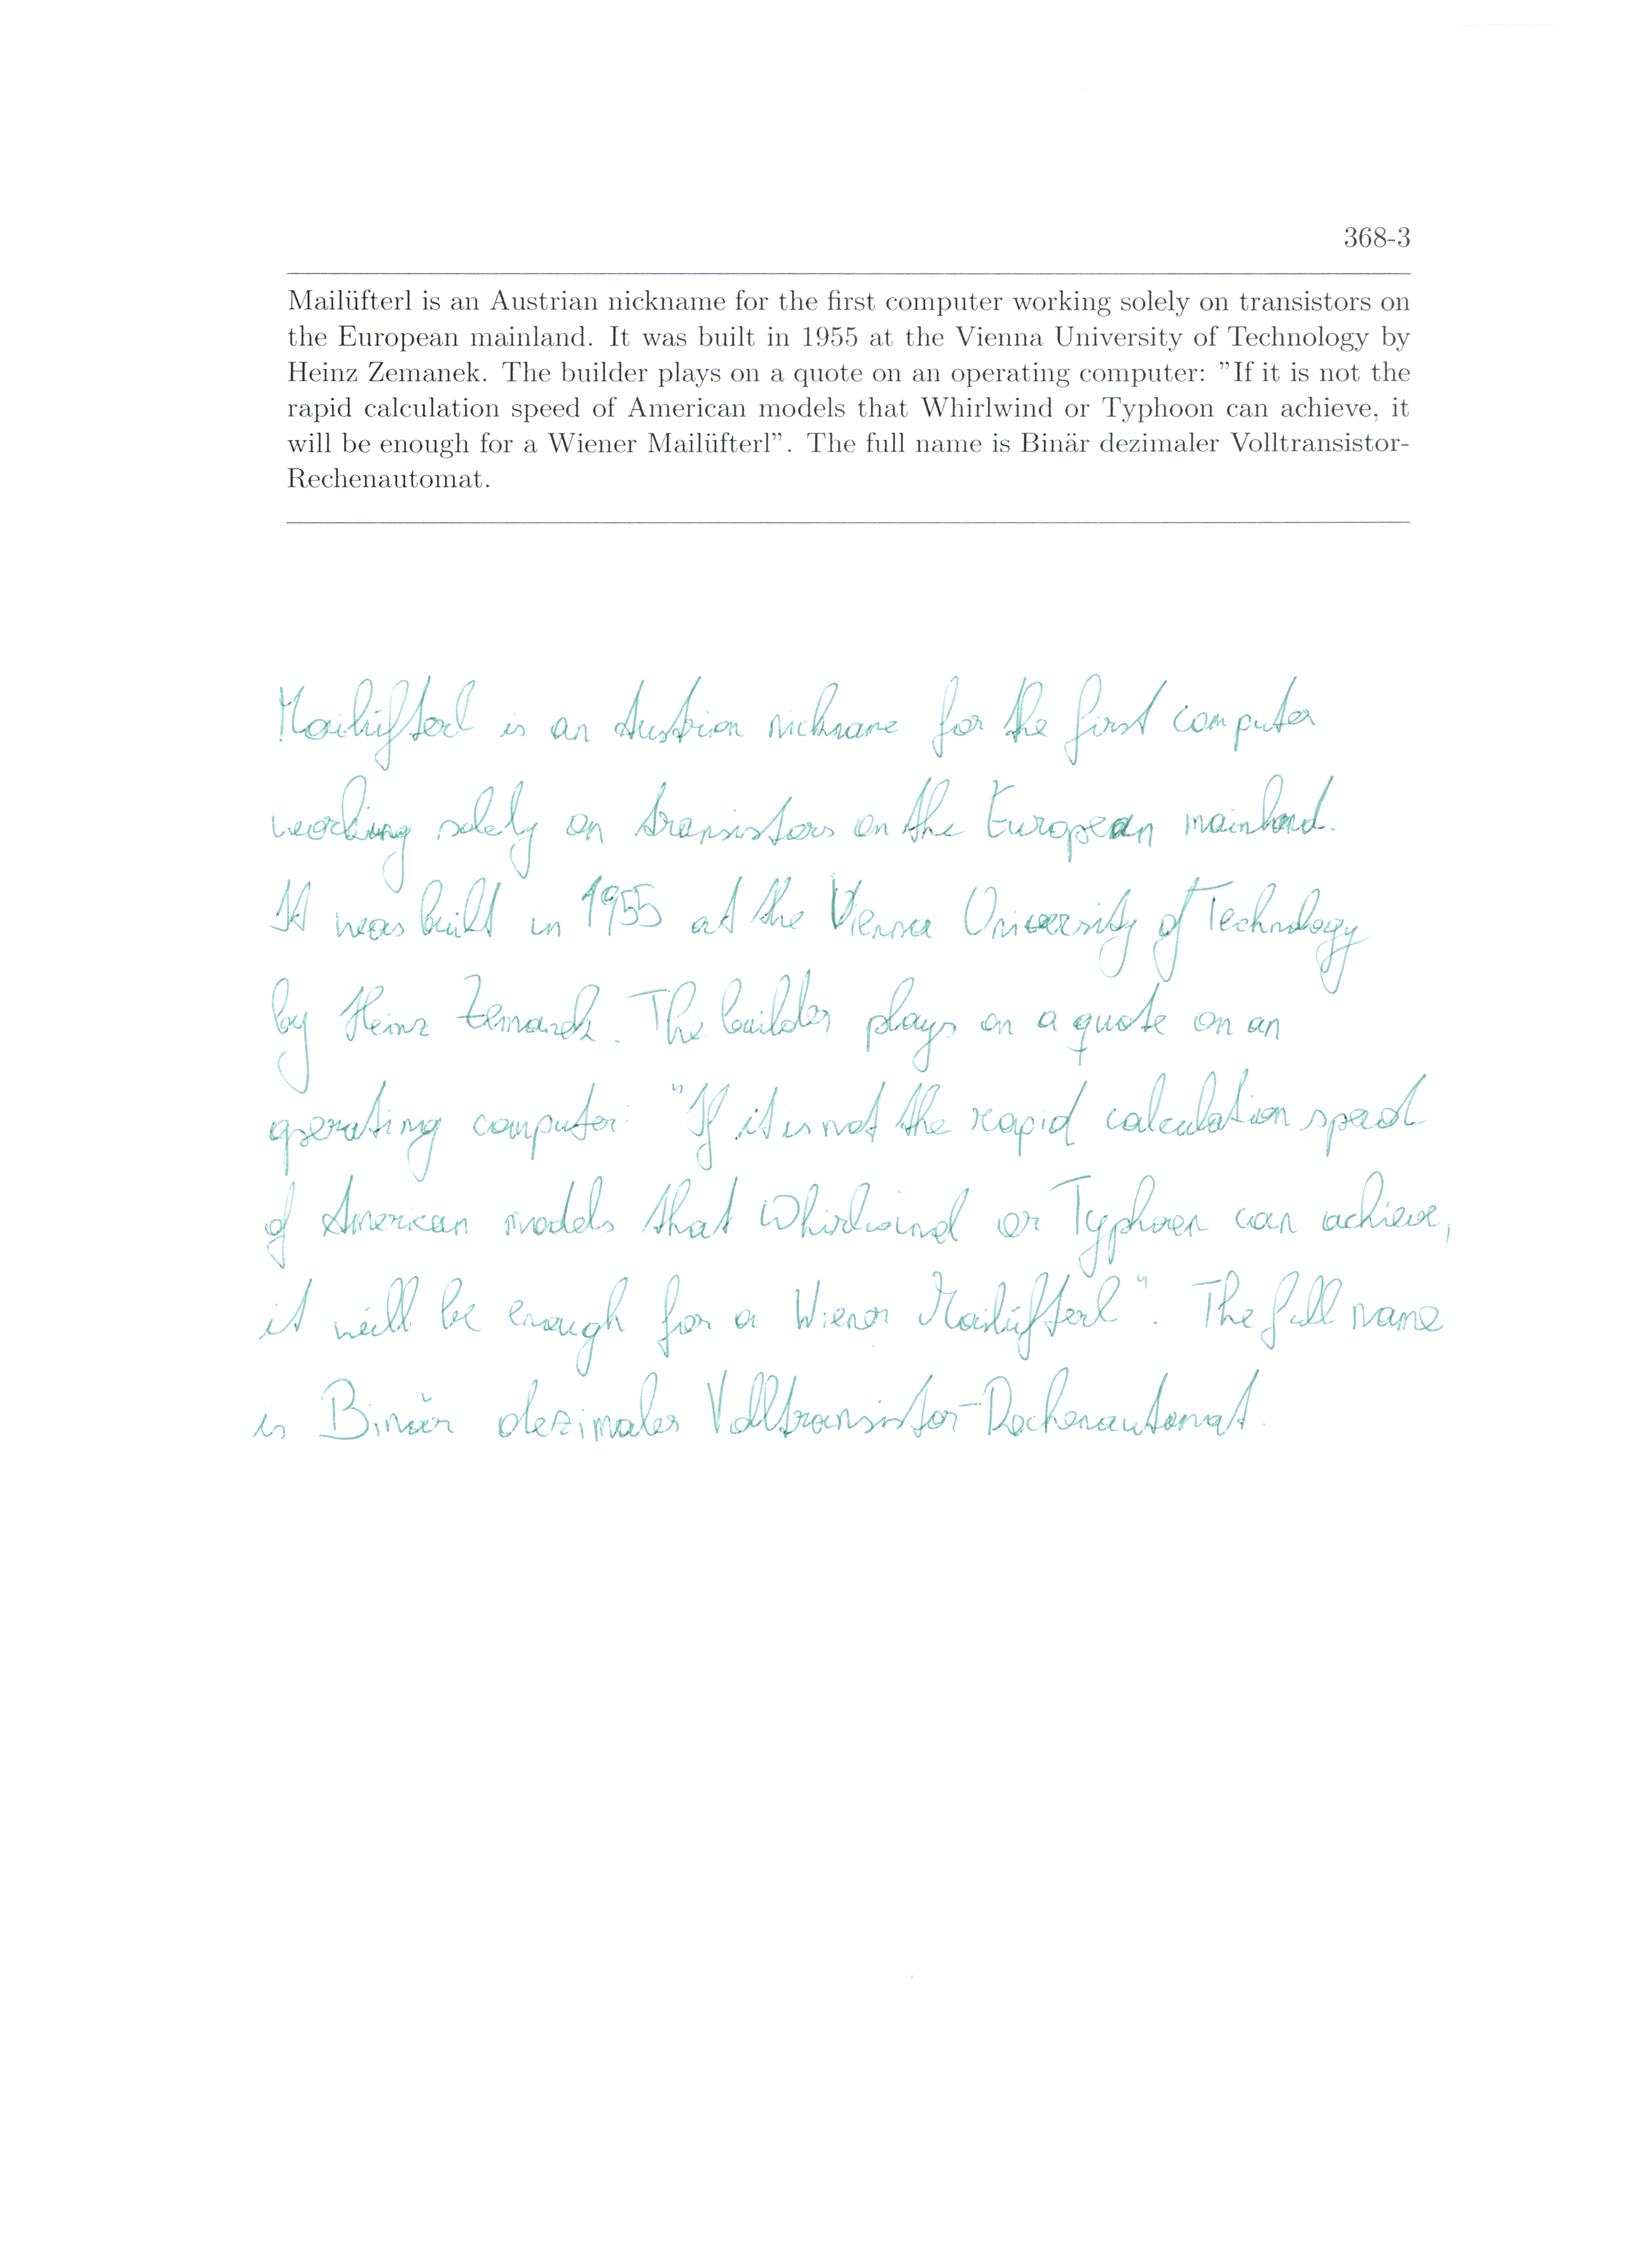 368-3
Mailüfterl is an Austrian nickname for the first computer working solely on transistors on
the European mainland. It was built in 1955 at the Vienna University of Technology by
Heinz Zemanek. The builder plays on a quote on an operating computer: ”If it is not the
rapid calculation speed of American models that Whirlwind or Typhoon can achieve, it
will be enough for a Wiener Mailüfterl”. The full name is Binär dezimaler Volltransistor-
Rechenautomat.
Mailüfterl is an Austrian nickname for the first computer
working solely on transistors on the European mainland.
It was built in 1955 at the Vienna University of Technology
by Heinz Zemanek. The builder plays on a quote on an
operating computer: "If it is not the rapid calculation speed
of American models that Whirlwind or Typhoon can achieve,
it will be enough for a Wiener Mailüfterl". The full name
is Binär dezimaler Volltransistor-Rechenautomat.